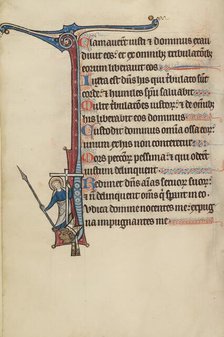 Clamaverunt iusti & dominus exau
divit eos: et ex omnibus tribulationibus
eorum liberavit eos
Iuxta est dns his qui tribulato sut
corde: & humiles spu salvabit
Multe tribulationes iustorum: & de
his liberavit eos dominus
Custodit dominus omnia ossa eorum
unum ex his non conteretur
Mors peccatorum pessima: & qui oderunt
iustum delinquent
Redimet dns aias servorum suorum: &
non delinquent omnes qui sperant in eo
Iudica domine nocentes me: expug
na impugnantes me